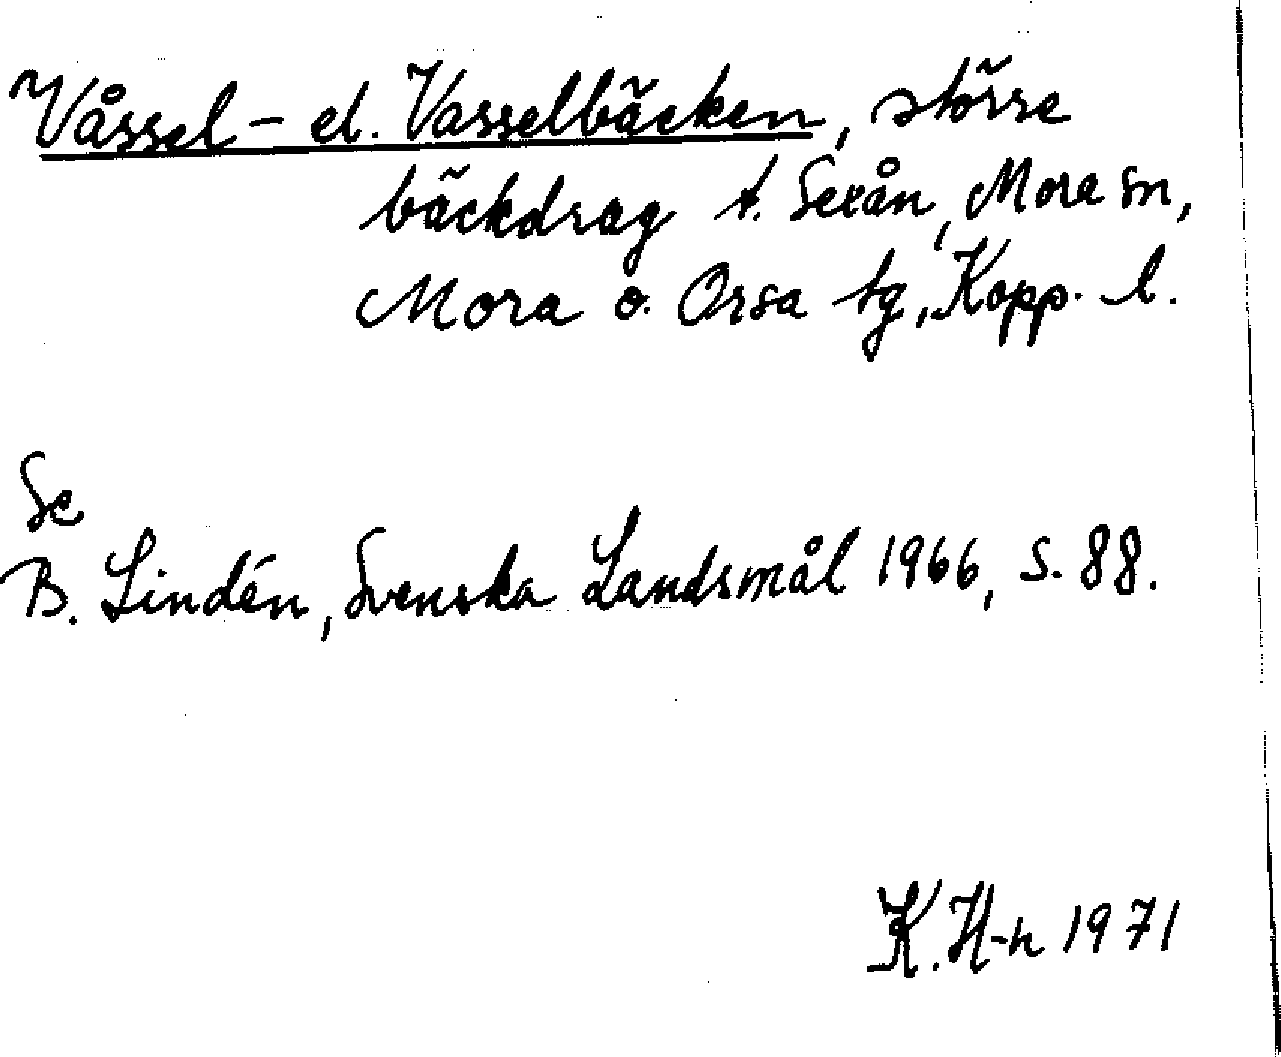 Våssel- el. Vasselbäcken, större
bäckdrag t. Sexån, Mora sn,
Mora o. Orsa tg, Kopp. l.
Se
B. Lindén, Svenska Landsmål 1966, s. 88.
K. H-n 1971